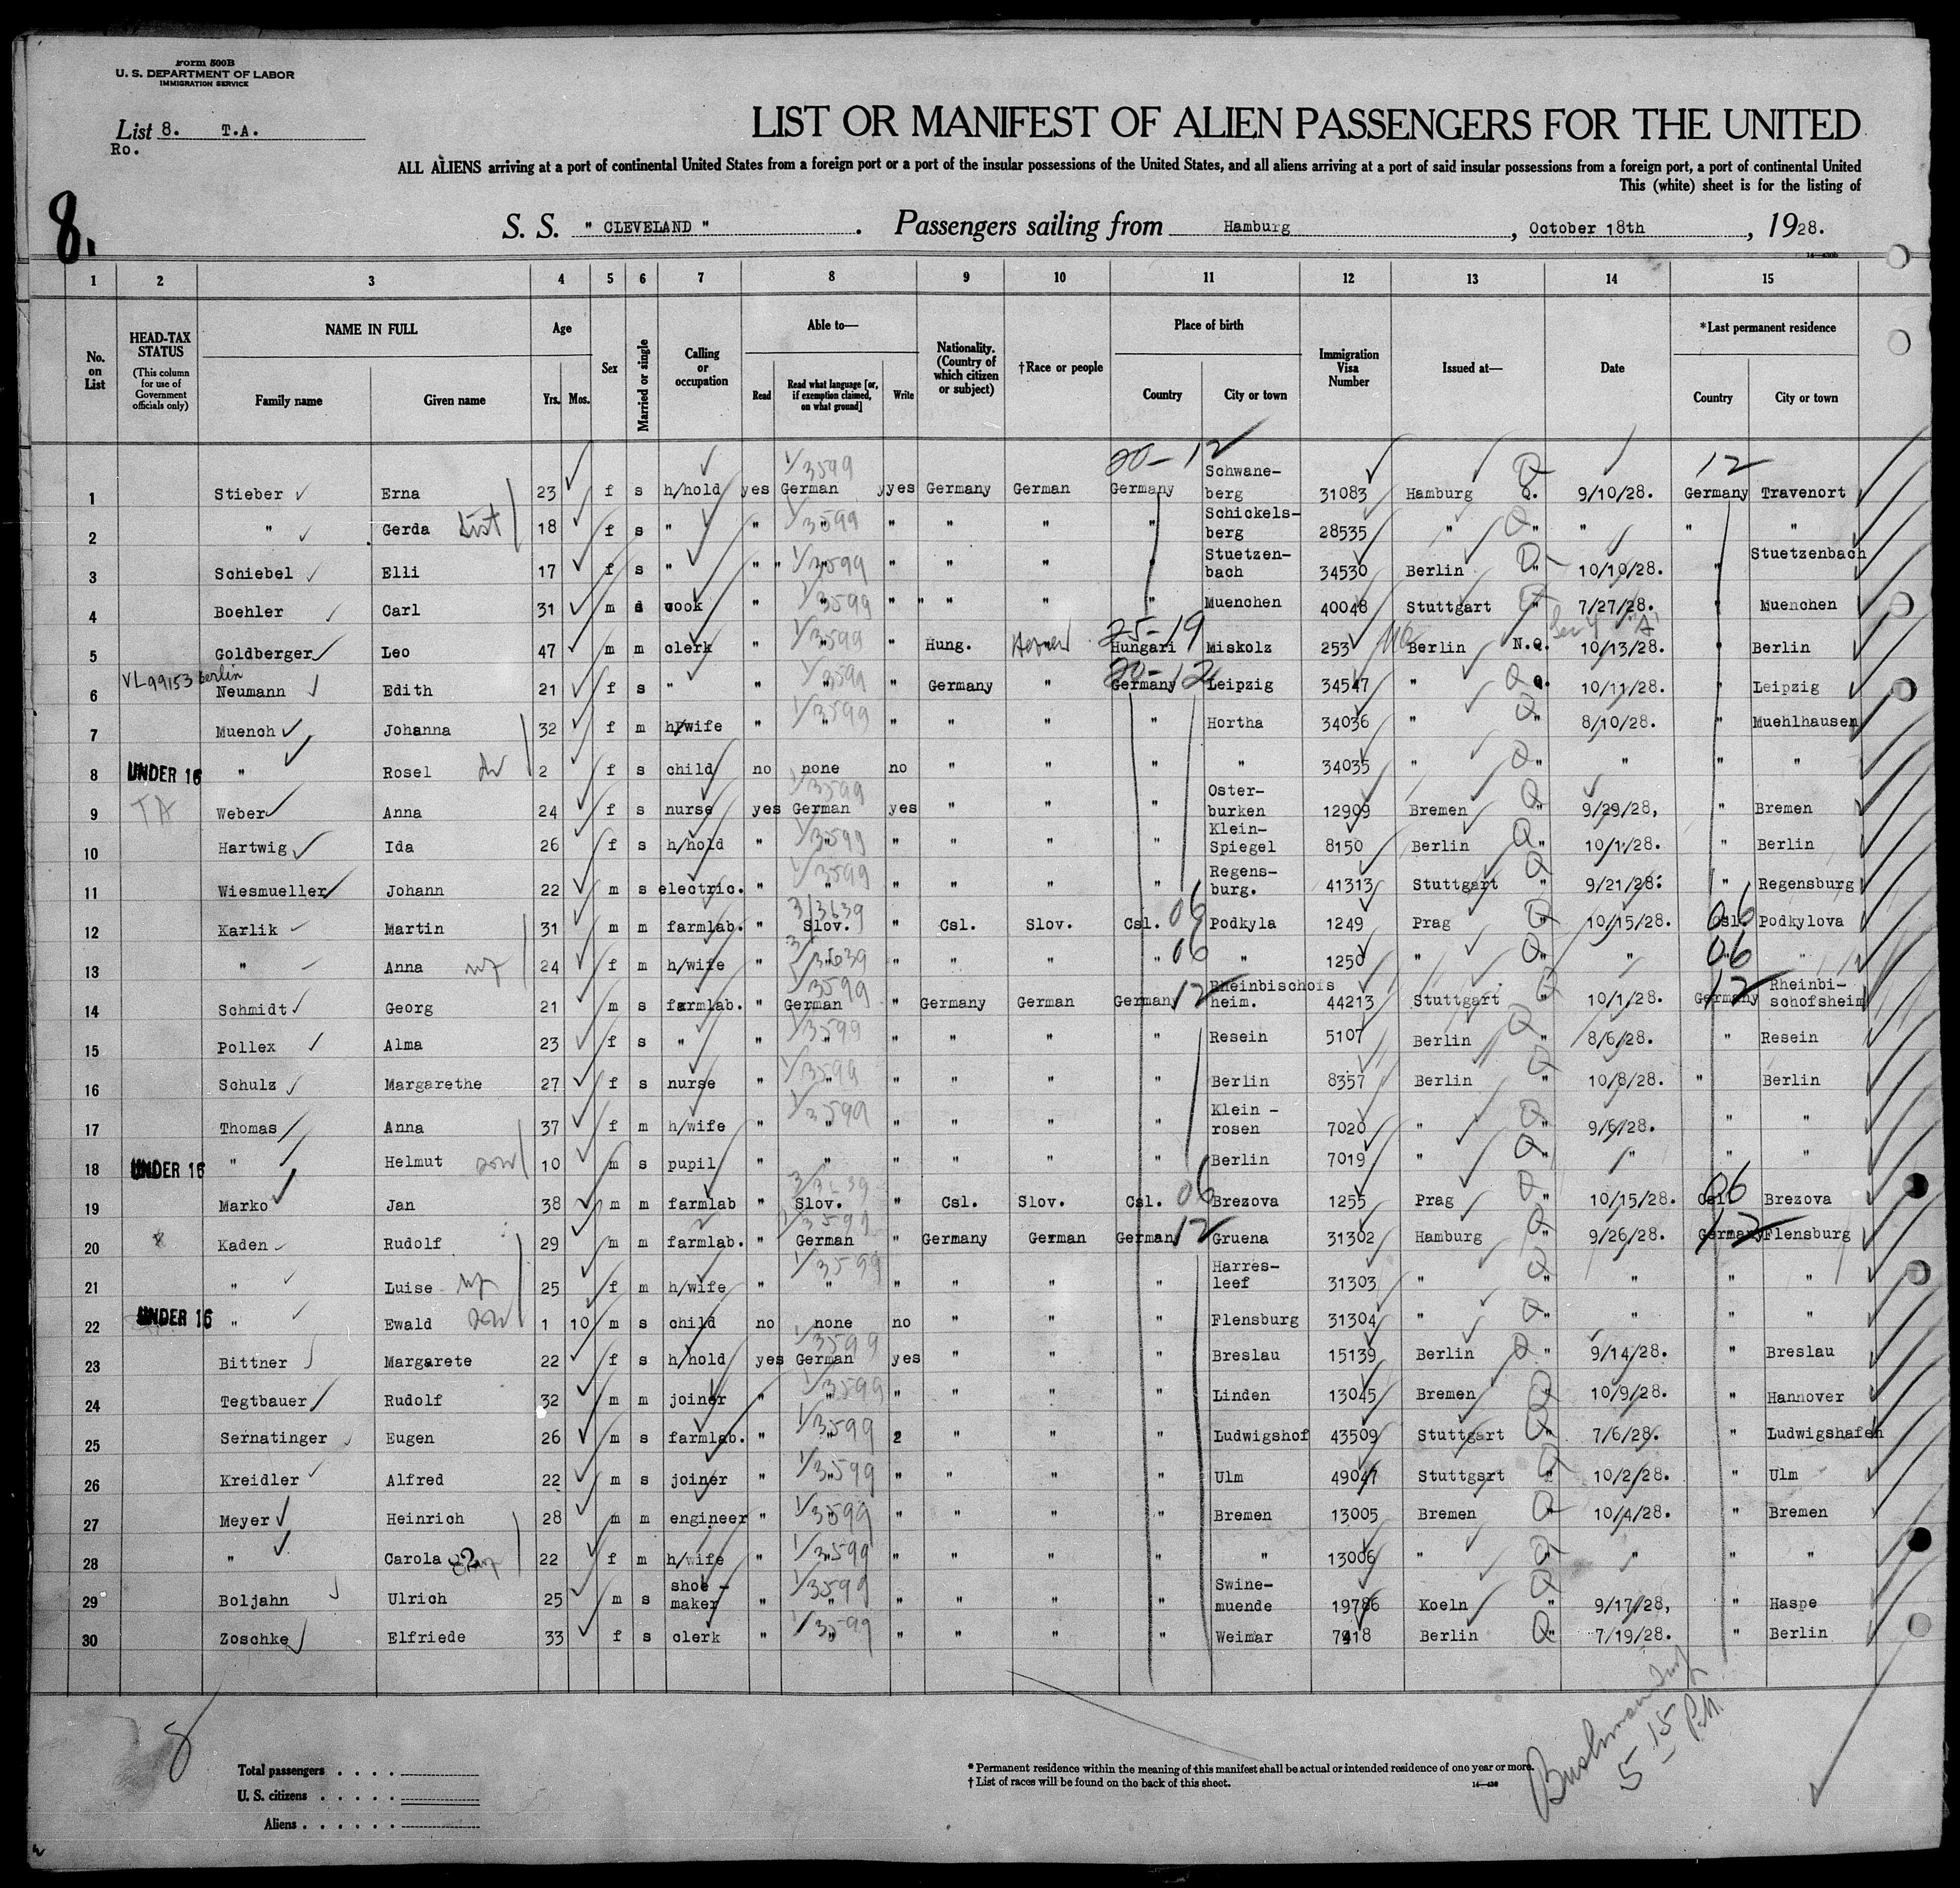 Form 500B
U. S. DEPARTMENT OF LABOR
IMMIGRATION SERVICE
List 8. T.A.
Ro.
8.
LIST OR MANIFEST OF ALIEN PASSENGERS FOR THE UNITED
ALL ALIENS arriving at a port of continental United States from a foreign port or a port of the insular possessions of the United States, and all aliens arriving at a port of said insular possessions from a foreign port, a port of continental United
This (white) sheet is for the listing of
S. S. " CLEVELAND " . Passengers sailing from Hamburg , October 18th , 1928.
1 2 3 4 5 6 7 8 9 10 11 12 13 14 15
No. on List HEAD-TAX STATUS (This column for use of Government officials only) NAME IN FULL Family name Given name Age Yrs. Mos. Sex Married or single Calling or occupation Able to— Read Read what language [or, if exemption claimed, on what ground] Write Nationality. (Country of which citizen or subject) †Race or people Place of birth Country City or town Immigration Visa Number Issued at— Date *Last permanent residence Country City or town
20-12 12
1 Stieber Erna 23 f s h/hold yes German 1/3599 yyes Germany German Germany Schwane-berg 31083 Hamburg Q. 9/10/28. Germany Travenort
2 " Gerda sist 18 f s " " " 1/3599 " " " " Schickels-berg 28535 " " " " "
3 Schiebel Elli 17 f s " " " " 1/3599 " " " " Stuetzen-bach 34530 Berlin " 10/10/28. " Stuetzenbach
4 Boehler Carl 31 m s cook " " 1/3599 " " " " " Muenchen 40048 Stuttgart " 7/27/28. " Muenchen
25-19
5 Goldberger Leo 47 m m clerk " " 1/3599 " Hung. Hebrew Hungari Miskolz 253 Berlin N.Q. 10/13/28. " Berlin
VL99153 berlin 20-12
6 Neumann Edith 21 f s " " " 1/3599 " Germany " Germany Leipzig 34547 " Q. 10/11/28. " Leipzig
7 Muench Johanna 32 f m h/wife " " 1/3599 " " " " Hortha 34036 " " 8/10/28. " Muehlhausen
8 UNDER 16 " Rosel 2 f s child no none no " " " " 34035 " " " " "
9 TA Weber Anna 24 f s nurse yes German 1/3599 yes " " " Oster-burken 12909 Bremen " 9/29/28, " Bremen
10 Hartwig Ida 26 f s h/hold " " 1/3599 " " " " Klein-Spiegel 8150 Berlin " 10/1/28. " Berlin
11 Wiesmueller Johann 22 m s electric. " " 1/3599 " " " " Regens-burg. 41313 Stuttgart " 9/21/28. " Regensburg
12 Karlik Martin 31 m m farmlab. " Slov. 3/3639 " Csl. Slov. Csl. 06 Podkyla 1249 Prag " 10/15/28. Csl. 06 Podkylova
13 " Anna wf 24 f m h/wife " " 3/3639 " " " " 06 " 1250 " " " " 06 "
14 Schmidt Georg 21 m s farmlab. " German 1/3599 " Germany German Germany 12 Rheinbischofs heim. 44213 Stuttgart " 10/1/28. Germany 12 Rheinbi-schofsheim
15 Pollex Alma 23 f s " " " 1/3599 " " " " Resein 5107 Berlin " 8/6/28. " Resein
16 Schulz Margarethe 27 f s nurse " " 1/3599 " " " " Berlin 8357 Berlin " 10/8/28. " Berlin
17 Thomas Anna 37 f m h/wife " " 1/3599 " " " " Klein - rosen 7020 " " 9/6/28. " "
18 UNDER 16 " Helmut son 10 m s pupil " " " " " " Berlin 7019 " " " " "
19 Marko Jan 38 m m farmlab " Slov. 3/3639 " Csl. Slov. Csl. 06 Brezova 1255 Prag " 10/15/28. Csl. 06 Brezova
20 Kaden Rudolf 29 m m farmlab. " German 1/3599 " Germany German German 12 Gruena 31302 Hamburg " 9/26/28. Germany 12 Flensburg
21 " Luise wf 25 f m h/wife " " 1/3599 " " " " Harres-leef 31303 " " " " "
22 UNDER 16 " Ewald son 1 10 m s child no none no " " " Flensburg 31304 " " " " "
23 Bittner Margarete 22 f s h/hold yes German 1/3599 yes " " " Breslau 15139 Berlin " 9/14/28. " Breslau
24 Tegtbauer Rudolf 32 m m joiner " " 1/3599 " " " " Linden 13045 Bremen " 10/9/28. " Hannover
25 Sernatinger Eugen 26 m s farmlab. " " 1/3599 2 " " " Ludwigshof 43509 Stuttgart " 7/6/28. " Ludwigshafen
26 Kreidler Alfred 22 m s joiner " " 1/3599 " " " " Ulm 49047 Stuttgart " 10/2/28. " Ulm
27 Meyer Heinrich 28 m m engineer " " 1/3599 " " " " Bremen 13005 Bremen " 10/4/28. " Bremen
28 " Carola 22 f m h/wife " " 1/3599 " " " " " 13006 " " " " "
29 Boljahn Ulrich 25 m s shoe - maker " " 1/3599 " " " " Swine-muende 19786 Koeln " 9/17/28, " Haspe
30 Zoschke Elfriede 33 f s clerk " " 1/3599 " " " " Weimar 7918 Berlin " 7/19/28. " Berlin
8
5 15 P.M.
Total passengers . . . .
U. S. citizens . . . . .
Aliens . . . . . .
* Permanent residence within the meaning of this manifest shall be actual or intended residence of one year or more.
† List of races will be found on the back of this sheet.